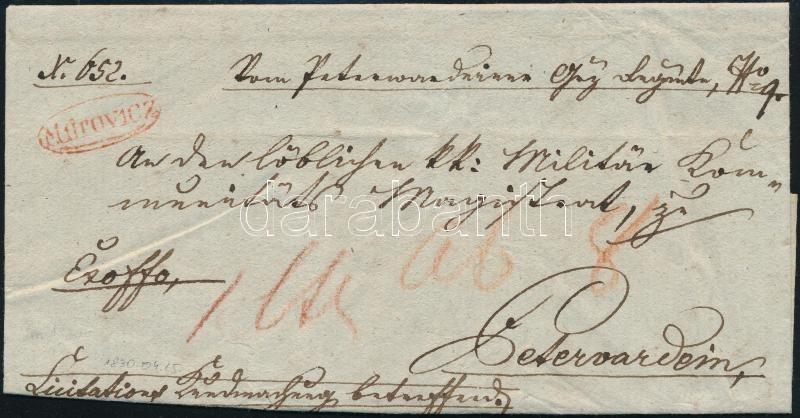 N. 652. Vom Peterwardeiner Grz Regmte, No 9.
Mitrovicz
An den löblichen kk: Militär Kom=
munitäts Magistrat, zu
Exoffo,
Petervardein,
Licitations Kundmachung betreffend.
darabanth